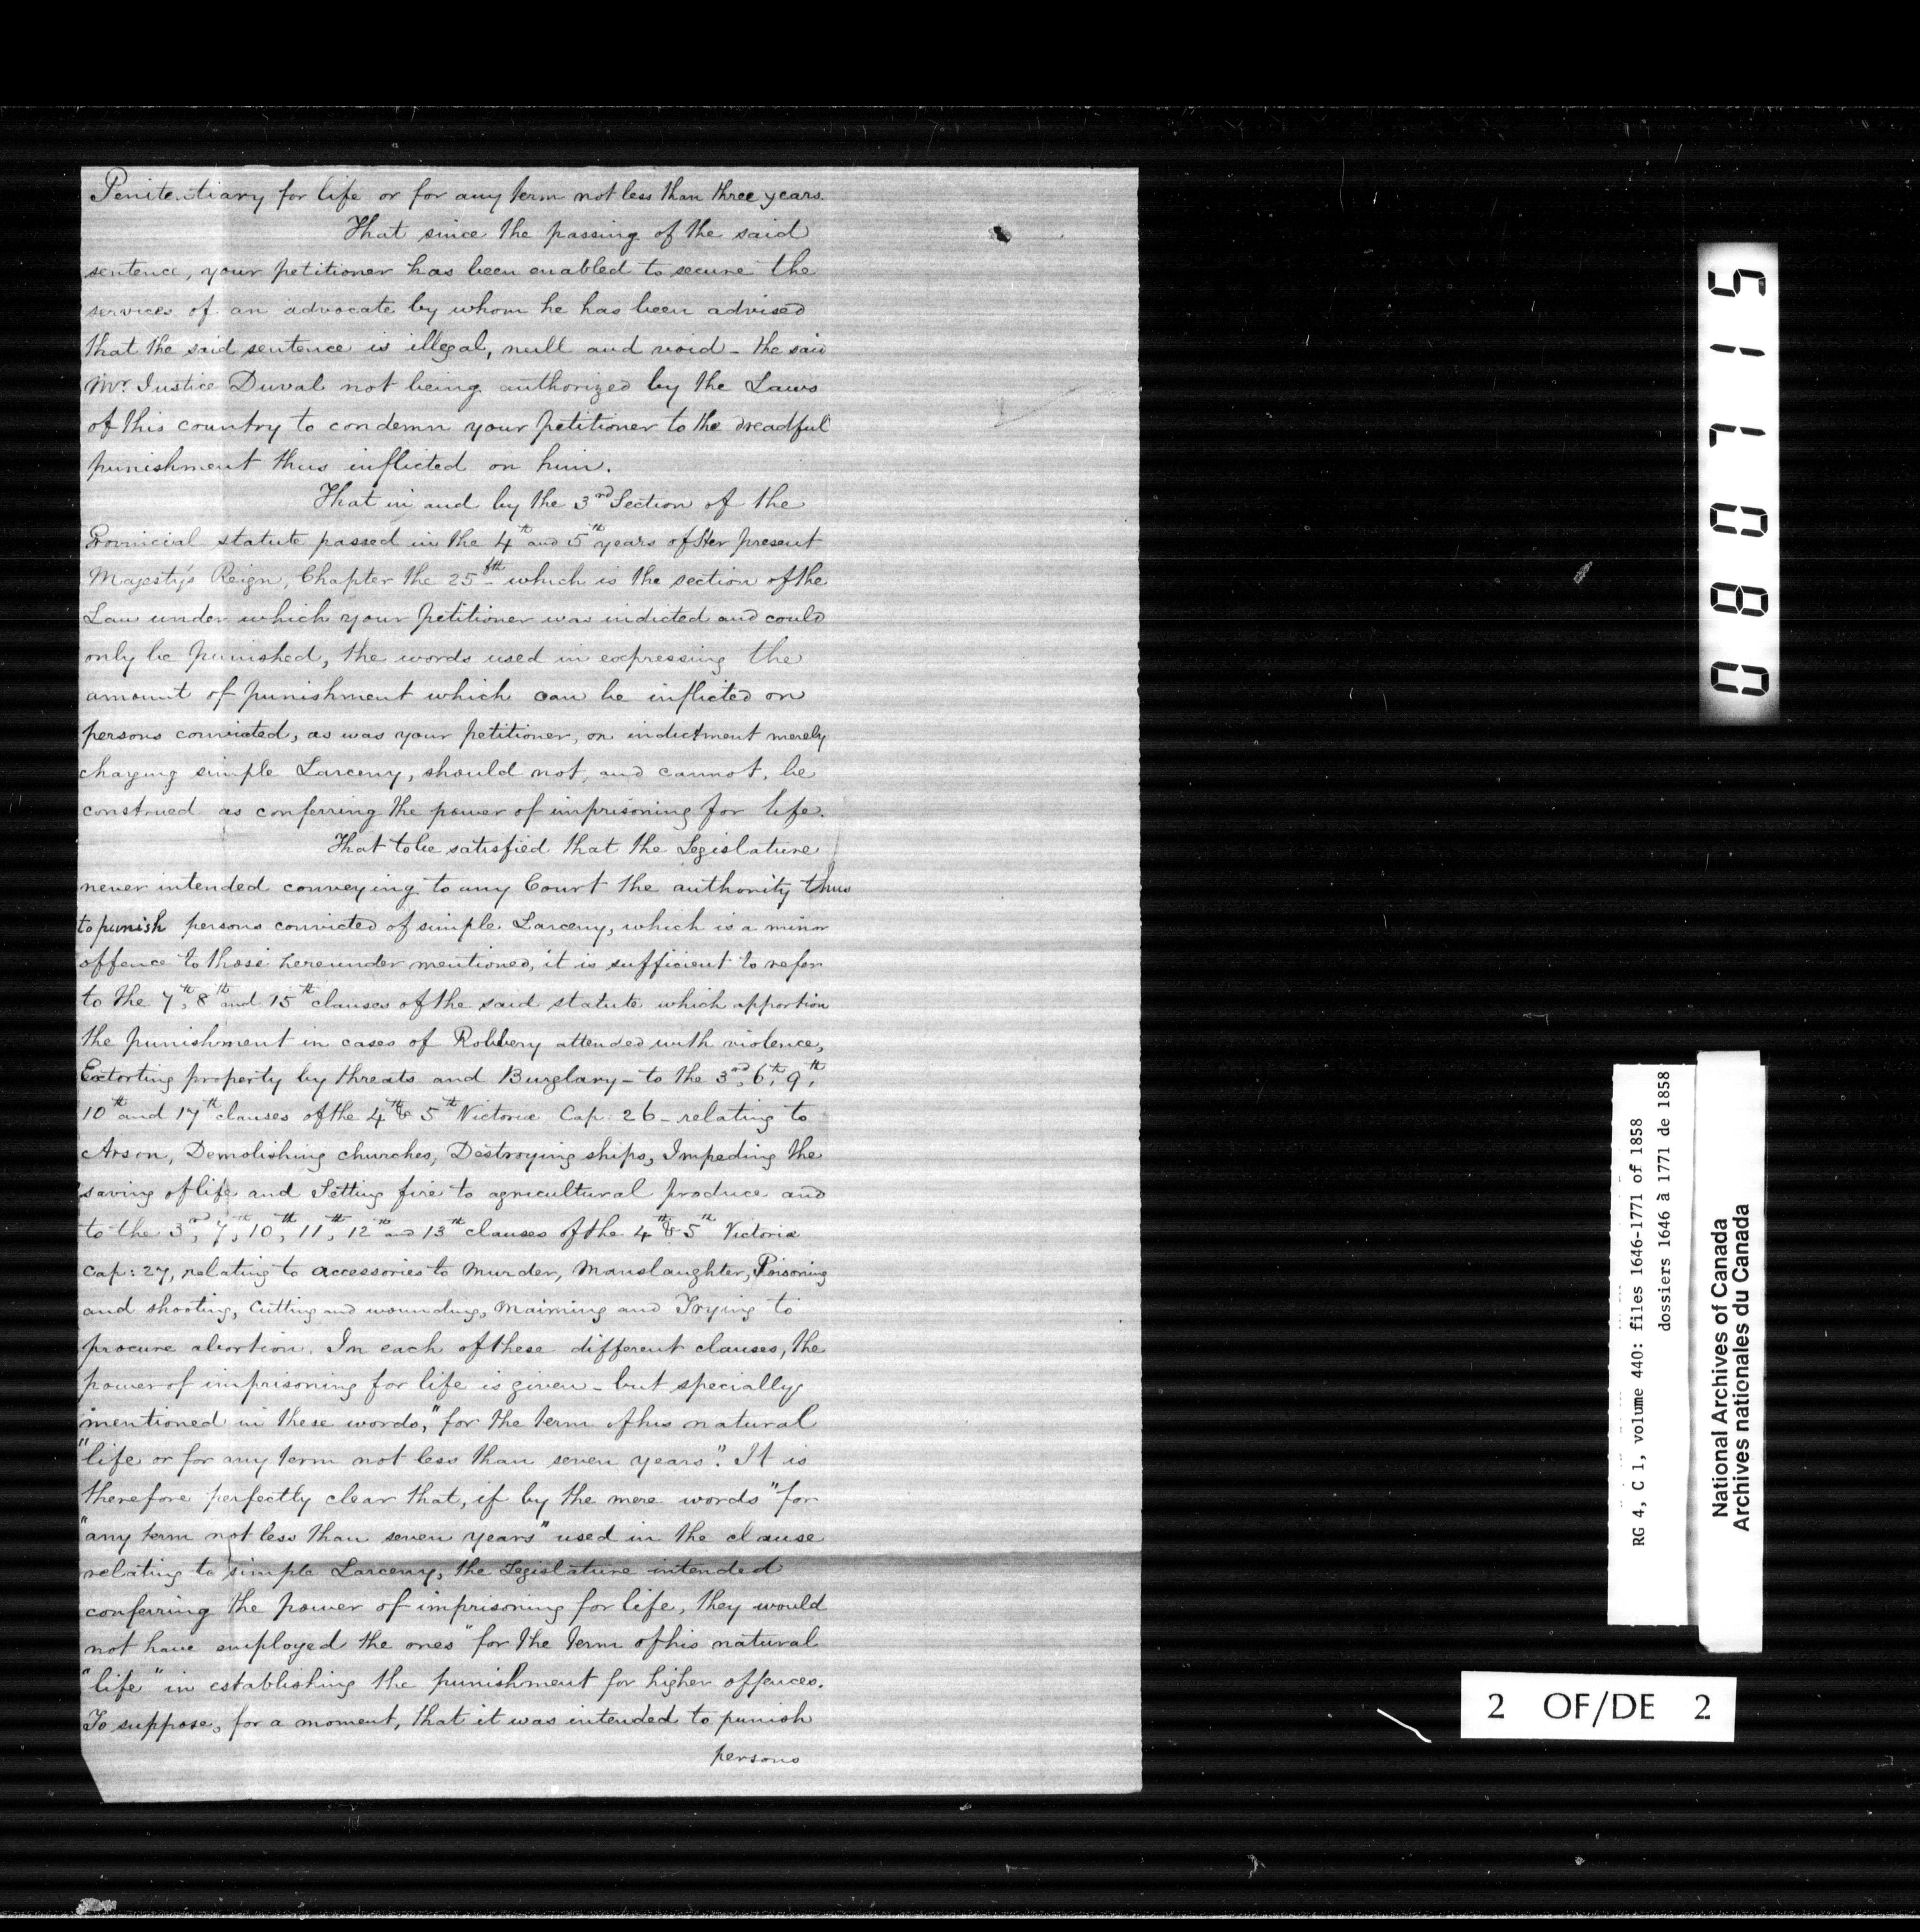 Penitentiary for life or for any term not less than three years.
That since the passing of the said
sentence, your petitioner has been enabled to secure the
services of an advocate by whom he has been advised
that the said sentence is illegal, null and void - the said
Mr. Justice Duval not being authorized by the Laws
of this country to condemn your petitioner to the dreadful
punishment thus inflicted on him.
That in and by the 3rd Section of the
Provincial statute passed in the 4th and 5th years of Her present
Majesty's Reign, Chapter the 25fth which is the section of the
Law under which your petitioner was indicted and could
only be punished, the words used in expressing the
amount of punishment which can be inflicted on
persons convicted, as was your petitioner, on indictment merely
charging simple Larceny, should not, and cannot, be
construed as conferring the power of imprisoning for life.
That to be satisfied that the Legislature
never intended conveying to any Court the authority thus
to punish persons convicted of simple Larceny, which is a minor
offence to those hereunder mentioned, it is sufficient to refer
to the 7th, 8th and 15th clauses of the said statute which apportion
the punishment in cases of Robbery attended with violence,
Extorting property by threats and Burglary - to the 3rd, 6th, 9th,
10th and 17th clauses of the 4th & 5th Victoria Cap. 26 - relating to
Arson, Demolishing churches, Destroying ships, Impeding the
saving of life and Setting fire to agricultural produce and
to the 3rd, 7th, 10th, 11th, 12th and 13th clauses of the 4th & 5th Victoria
Cap: 27, relating to accessories to Murder, Manslaughter, Poisoning
and shooting, Cutting and wounding, Maiming and Trying to
procure abortion. In each of these different clauses, the
power of imprisoning for life is given - but specially
mentioned in these words, "for the term of his natural
"life or for any term not less than seven years". It is
therefore perfectly clear that, if by the mere words "for
"any term not less than seven years" used in the clause
relating to simple Larceny, the Legislature intended
conferring the power of imprisoning for life, they would
not have employed the ones "for the term of his natural
"life" in establishing the punishment for higher offences.
To suppose, for a moment, that it was intended to punish
persons
080715
RG 4, C 1, volume 440: files 1646-1771 of 1858
dossiers 1646 à 1771 de 1858
National Archives of Canada
Archives nationales du Canada
2 OF/DE 2